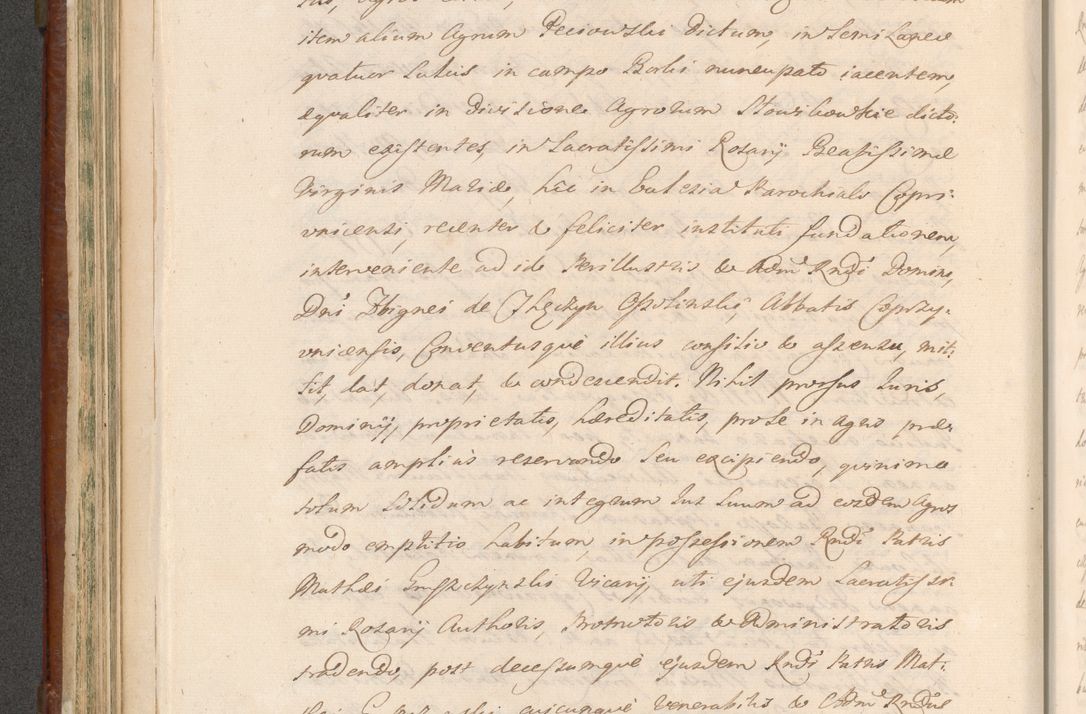 item alium Agrum Peciowski dictum, in Semi Laneo
quatuor Sulcis in campo Borki nuncupato iacentem,
equaliter in divisione Agrorum Slowikowskie dicto:
rum existentes, in Sacratissimi Rosarij Beatissimæ
Virginis Mariæ, hic in Ecclesia Parochiali Copri:
vnicensi, recenter & feliciter instituti fundationem,
interveniente ad id Perillustris & Admͫ Rndi Domini,
Dni Zbignei de Thęczyn Ossolinski, Abbatis Coprzy:
vnicensis, Conventusque illius consilio & assensu, mit:
tit, dat, donat, & condescendit. Nihil prorsus Iuris,
Dominij, proprietatis, hæreditatis, pro se in agris præ
fatis ampliùs reservando seu excipiendo, quinimo
totum solidum ac integrum Ius suum ad eosdem Agros
modo emptitio habitum, in possessionem Rndi Patris
Mathæi Vicarij, uti ejusdem Sacratissi
mi Rosarij Authoris, Promotoris & Administratoris
tradendo, post decessumque ejusdem Rndi Patris Mat:
cuicunque Venerabilis & Admͫ Rndus